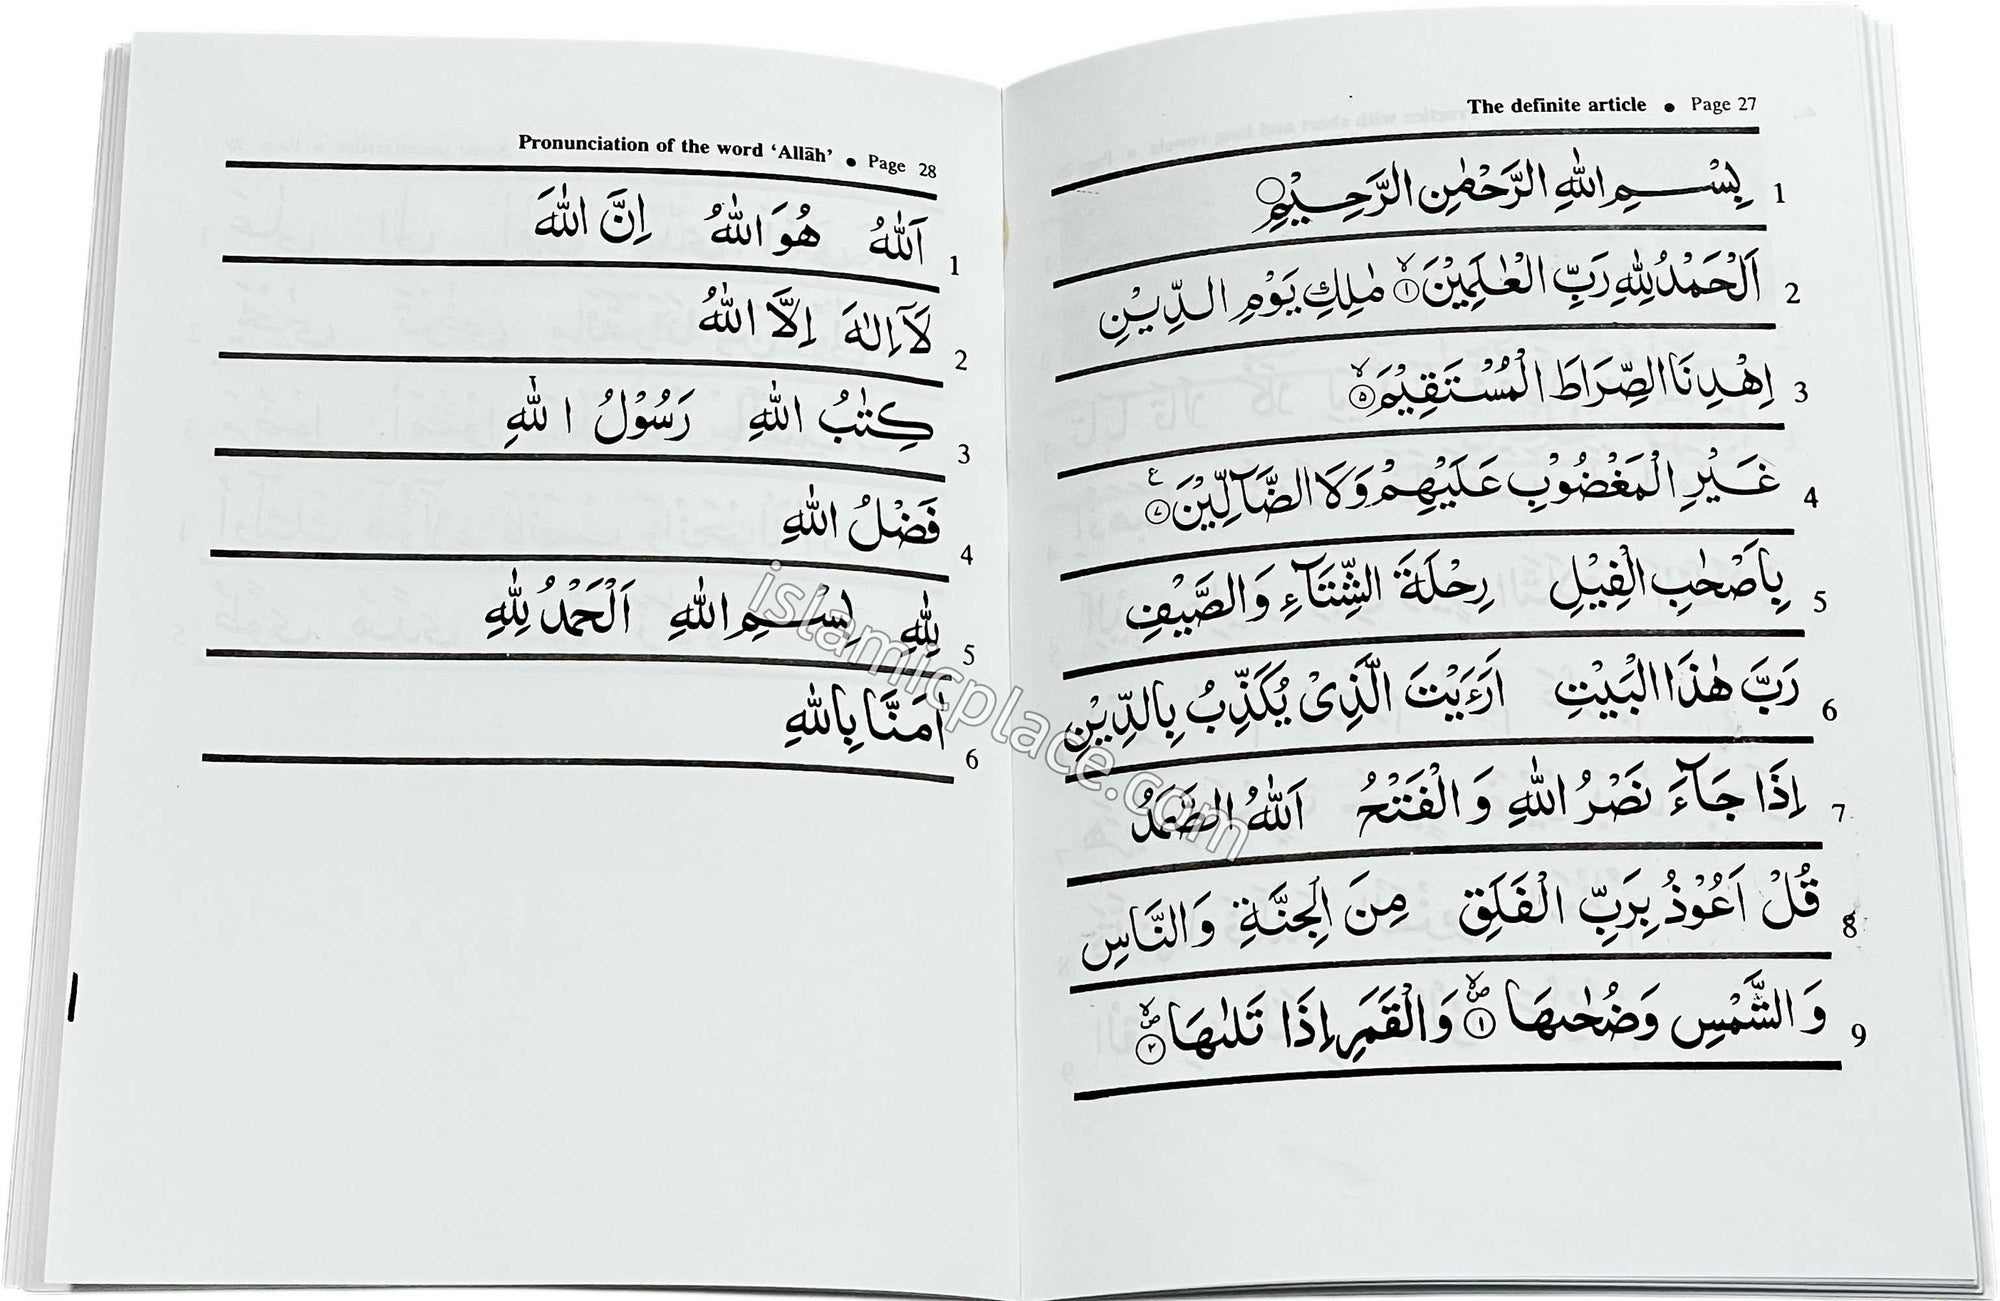 The definite article • Page 27
بِسْمِ اللّٰهِ الرَّحْمٰنِ الرَّحِيْمِ 1
اَلْحَمْدُ لِلّٰهِ رَبِّ الْعٰلَمِيْنَ ۙ﴿۱﴾ مٰلِكِ يَوْمِ الدِّيْنِ 2
اِهْدِنَا الصِّرَاطَ الْمُسْتَقِيْمَ ۙ﴿۵﴾ 3
غَيْرِ الْمَغْضُوْبِ عَلَيْهِمْ وَلَا الضَّآلِّيْنَ ﴿۷﴾ ع 4
بِاَصْحٰبِ الْفِيْلِ رِحْلَةَ الشِّتَآءِ وَالصَّيْفِ 5
رَبَّ هٰذَا الْبَيْتِ اَرَءَيْتَ الَّذِىْ يُكَذِّبُ بِالدِّيْنِ 6
اِذَا جَآءَ نَصْرُ اللّٰهِ وَ الْفَتْحُ اَللّٰهُ الصَّمَدُ 7
قُلْ اَعُوْذُ بِرَبِّ الْفَلَقِ مِنَ الْجِنَّةِ وَ النَّاسِ 8
وَ الشَّمْسِ وَضُحٰىهَا ۙ﴿۱﴾ وَالْقَمَرِ اِذَا تَلٰىهَا ۙ﴿۲﴾ 9
Pronunciation of the word ‘Allāh’ • Page 28
اَللّٰهُ هُوَ اللّٰهُ اِنَّ اللّٰهَ 1
لَآ اِلٰهَ اِلَّا اللّٰهُ 2
كِتٰبُ اللّٰهِ رَسُوْلُ اللّٰهِ 3
فَضْلُ اللّٰهِ 4
لِلّٰهِ بِسْمِ اللّٰهِ اَلْحَمْدُ لِلّٰهِ 5
اٰمَنَّا بِاللّٰهِ 6
islamicplace.com